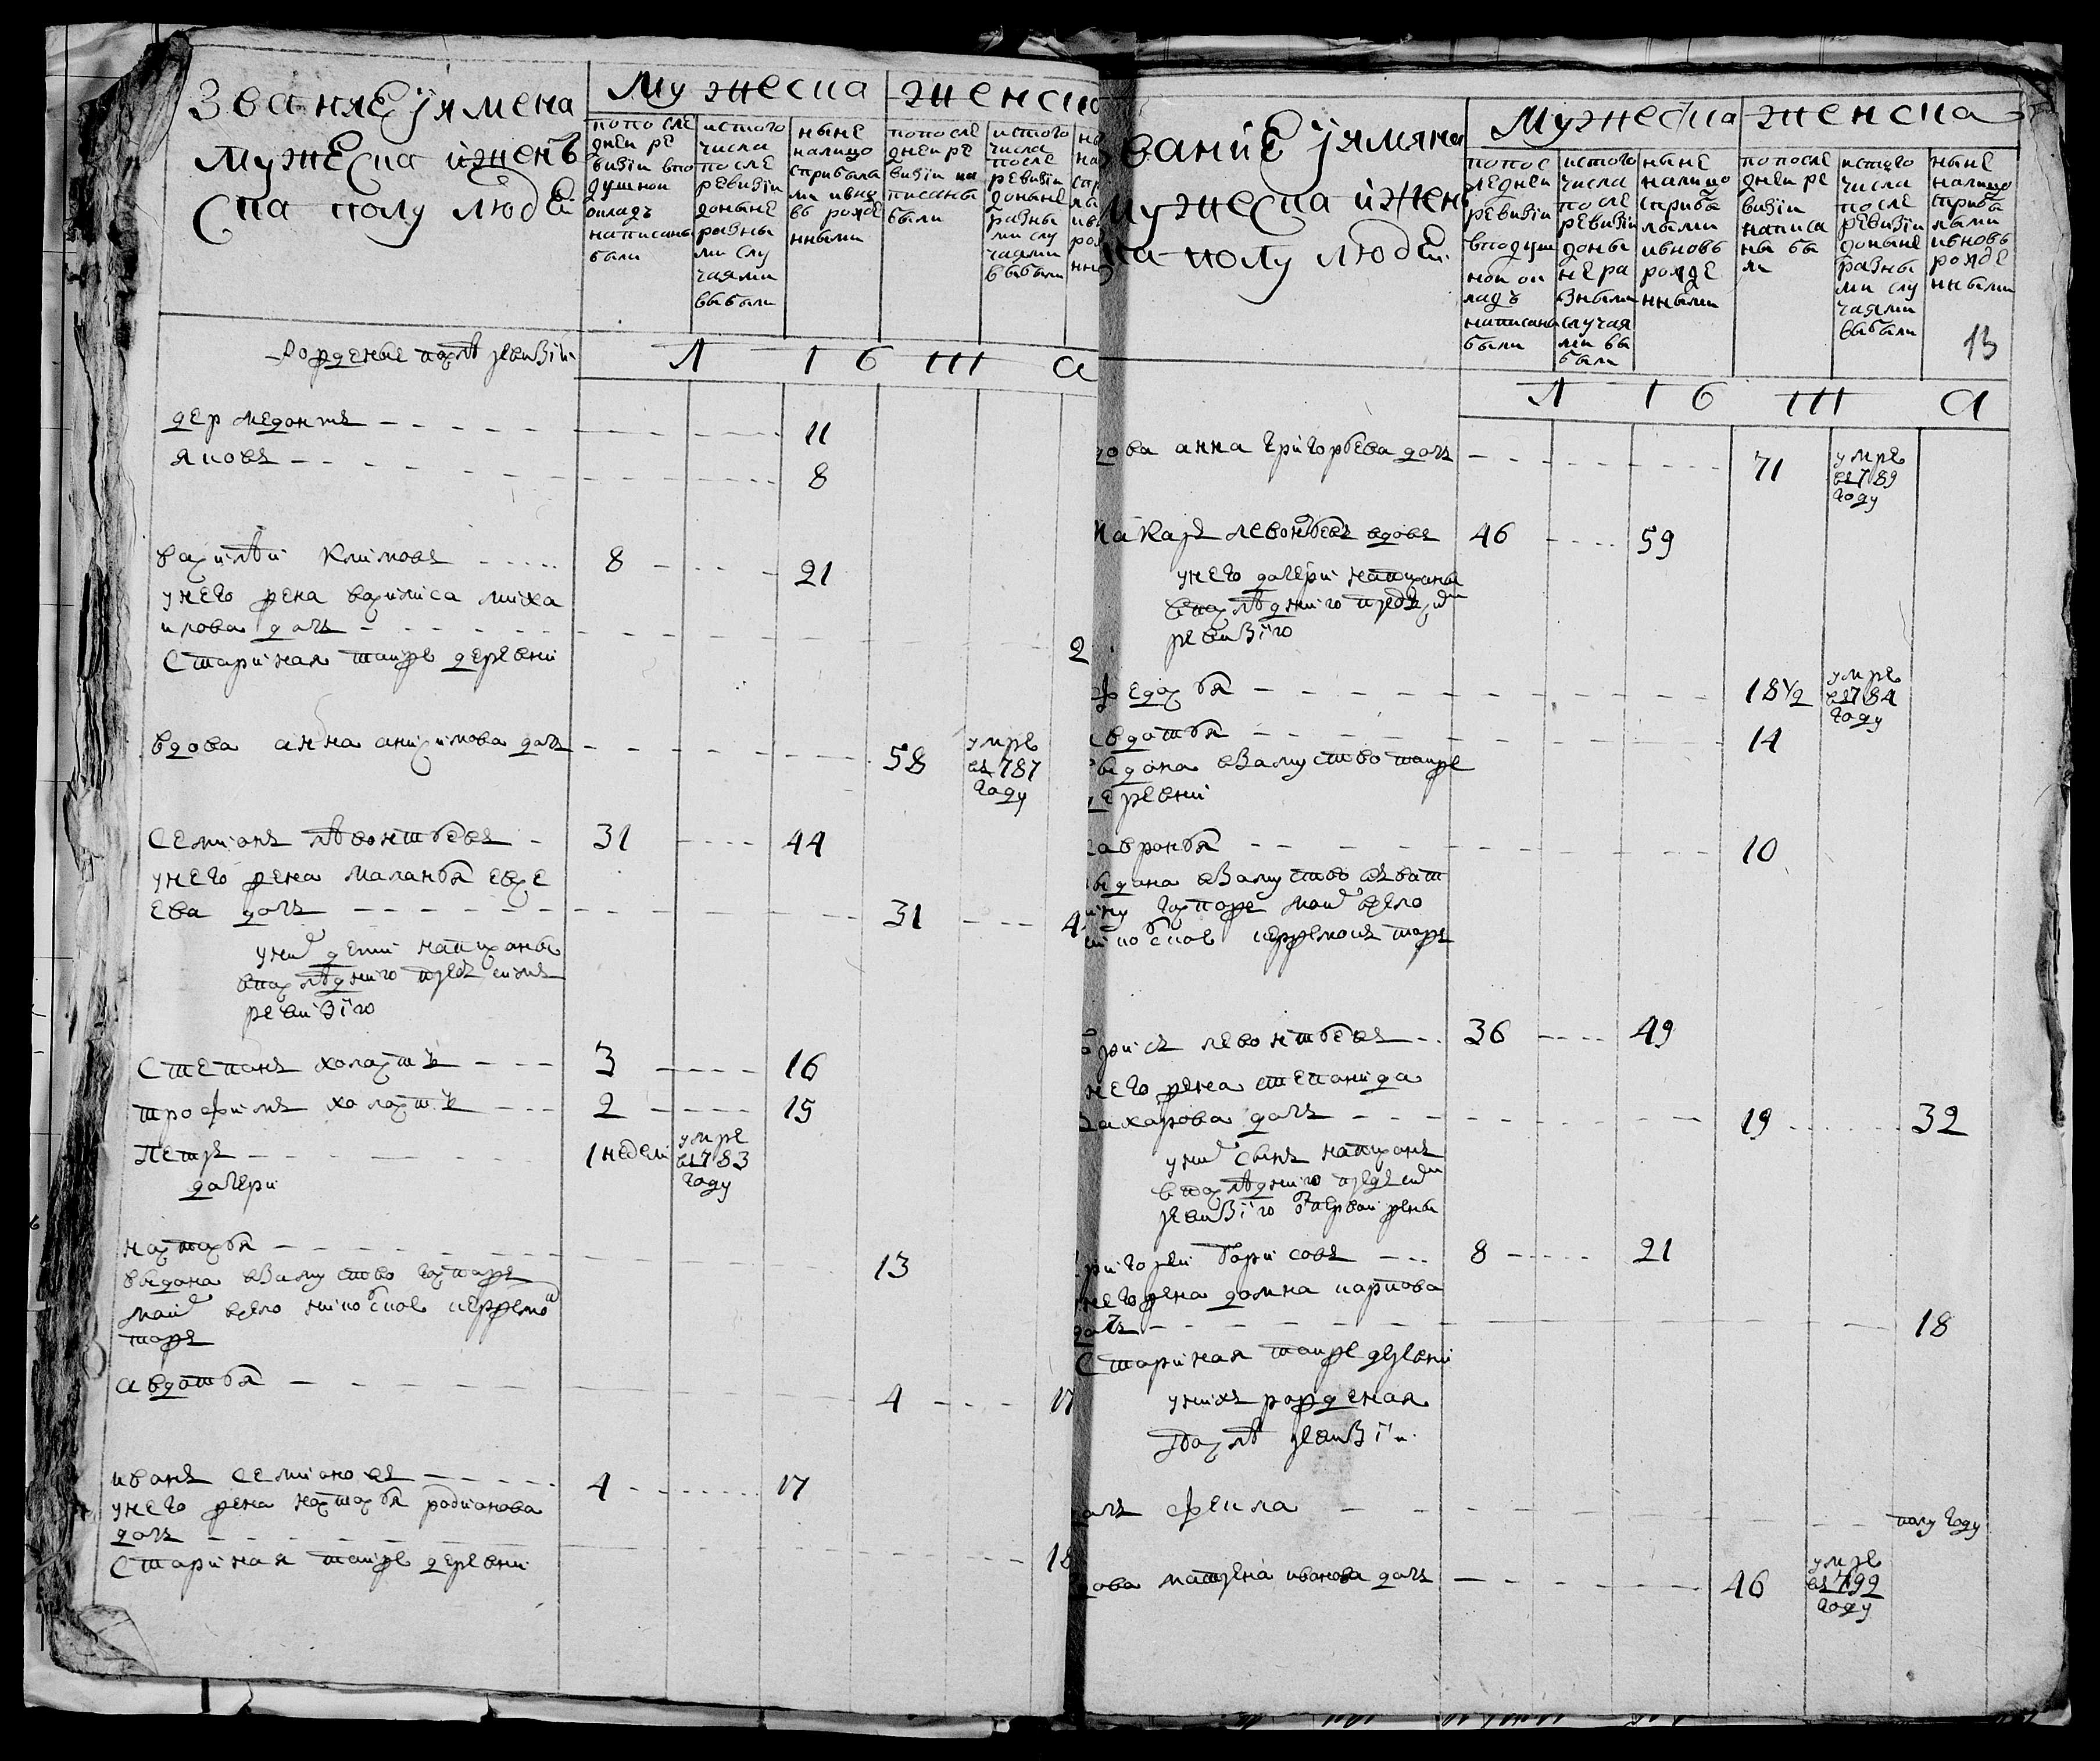 Званяе ј ямена
мужеска иженъ
ска полу людей
Мужеска
Женска
попосле
дней ре
визии впо
душной
окладъ
написаны
были
истого
числа
после
ревизии
доныне
разны
ми слу
чаями
выбыли
ныне
налицо
сприбыла
ми ивно
въ рожде
нными
попосле
дней ре
визии на
писаны
были
истого
числа
после
ревизии
доныне
разны
ми слу
чаями
выбыли
Л I б ш а
рожденые после ревизии
дермедонтъ 11
яковъ 8
василей климовъ 8 21
унего жена василиса миха
илова дочь 2
Старинная тоижъ деревни
вдова анна анисимова дочь 58 умре
въ 787
году
семионъ левонтьевъ 31 44
унего жена маланья евсе
ева дочь 31 4
уних дети написаныя
впоследнюю предъ сим
ревизию
степанъ холостъ 3 16
трофимъ холостъ 2 15
Петръ 1 недели умре
въ 783
году
дочери
настасья 13
выдана взамуство госпоже
авдотья 4 17
иванъ семионовъ 4 17
унего жена настасья родионова
дочь 18
Старинная тоижъ деревни
вание ј ямяна
мужеска ижен
ка полу людей
Мужеска
Женска
попос
ледней
ревизии
вподуш
ной ок
ладъ
написаны
были
истого
числа
после
ревизии
доны
не ра
зными
случая
ми вы
были
ныне
налицо
сприбы
лыми
ивновь
рожде
нными
попосле
дней ре
визии
написа
ны бы
ли
истого
числа
после
ревизии
доныне
разны
ми слу
чаями
выбыли
ныне
налицо
сприбы
лыми
ивновь
рожде
нными
13
Л I б ш а
дова анна григорьева дочь 71 умре
въ 789
году
макаръ левонтьевъ вдовъ 46 59
унего дочери написаны
впоследнюю предъ сим
ревизию
федосья 18½ умре
въ 784
году
вдотья 14
выдана взамуство тоижъ
деревни
хавронья 10
борисъ левонтьевъ 36 49
него жена степанида
захарова дочь 19 32
уних сынъ написанъ
впоследнюю предъ сим
ревизию отпервой жены
григорей борисовъ 8 21
него жена домна карпова
дочь 18
Старинная тоижъ деревни
унихъ рожденая
после ревизии
дочь фекла полу году
дова матрена иванова дочь 46 умре
въ 792
году